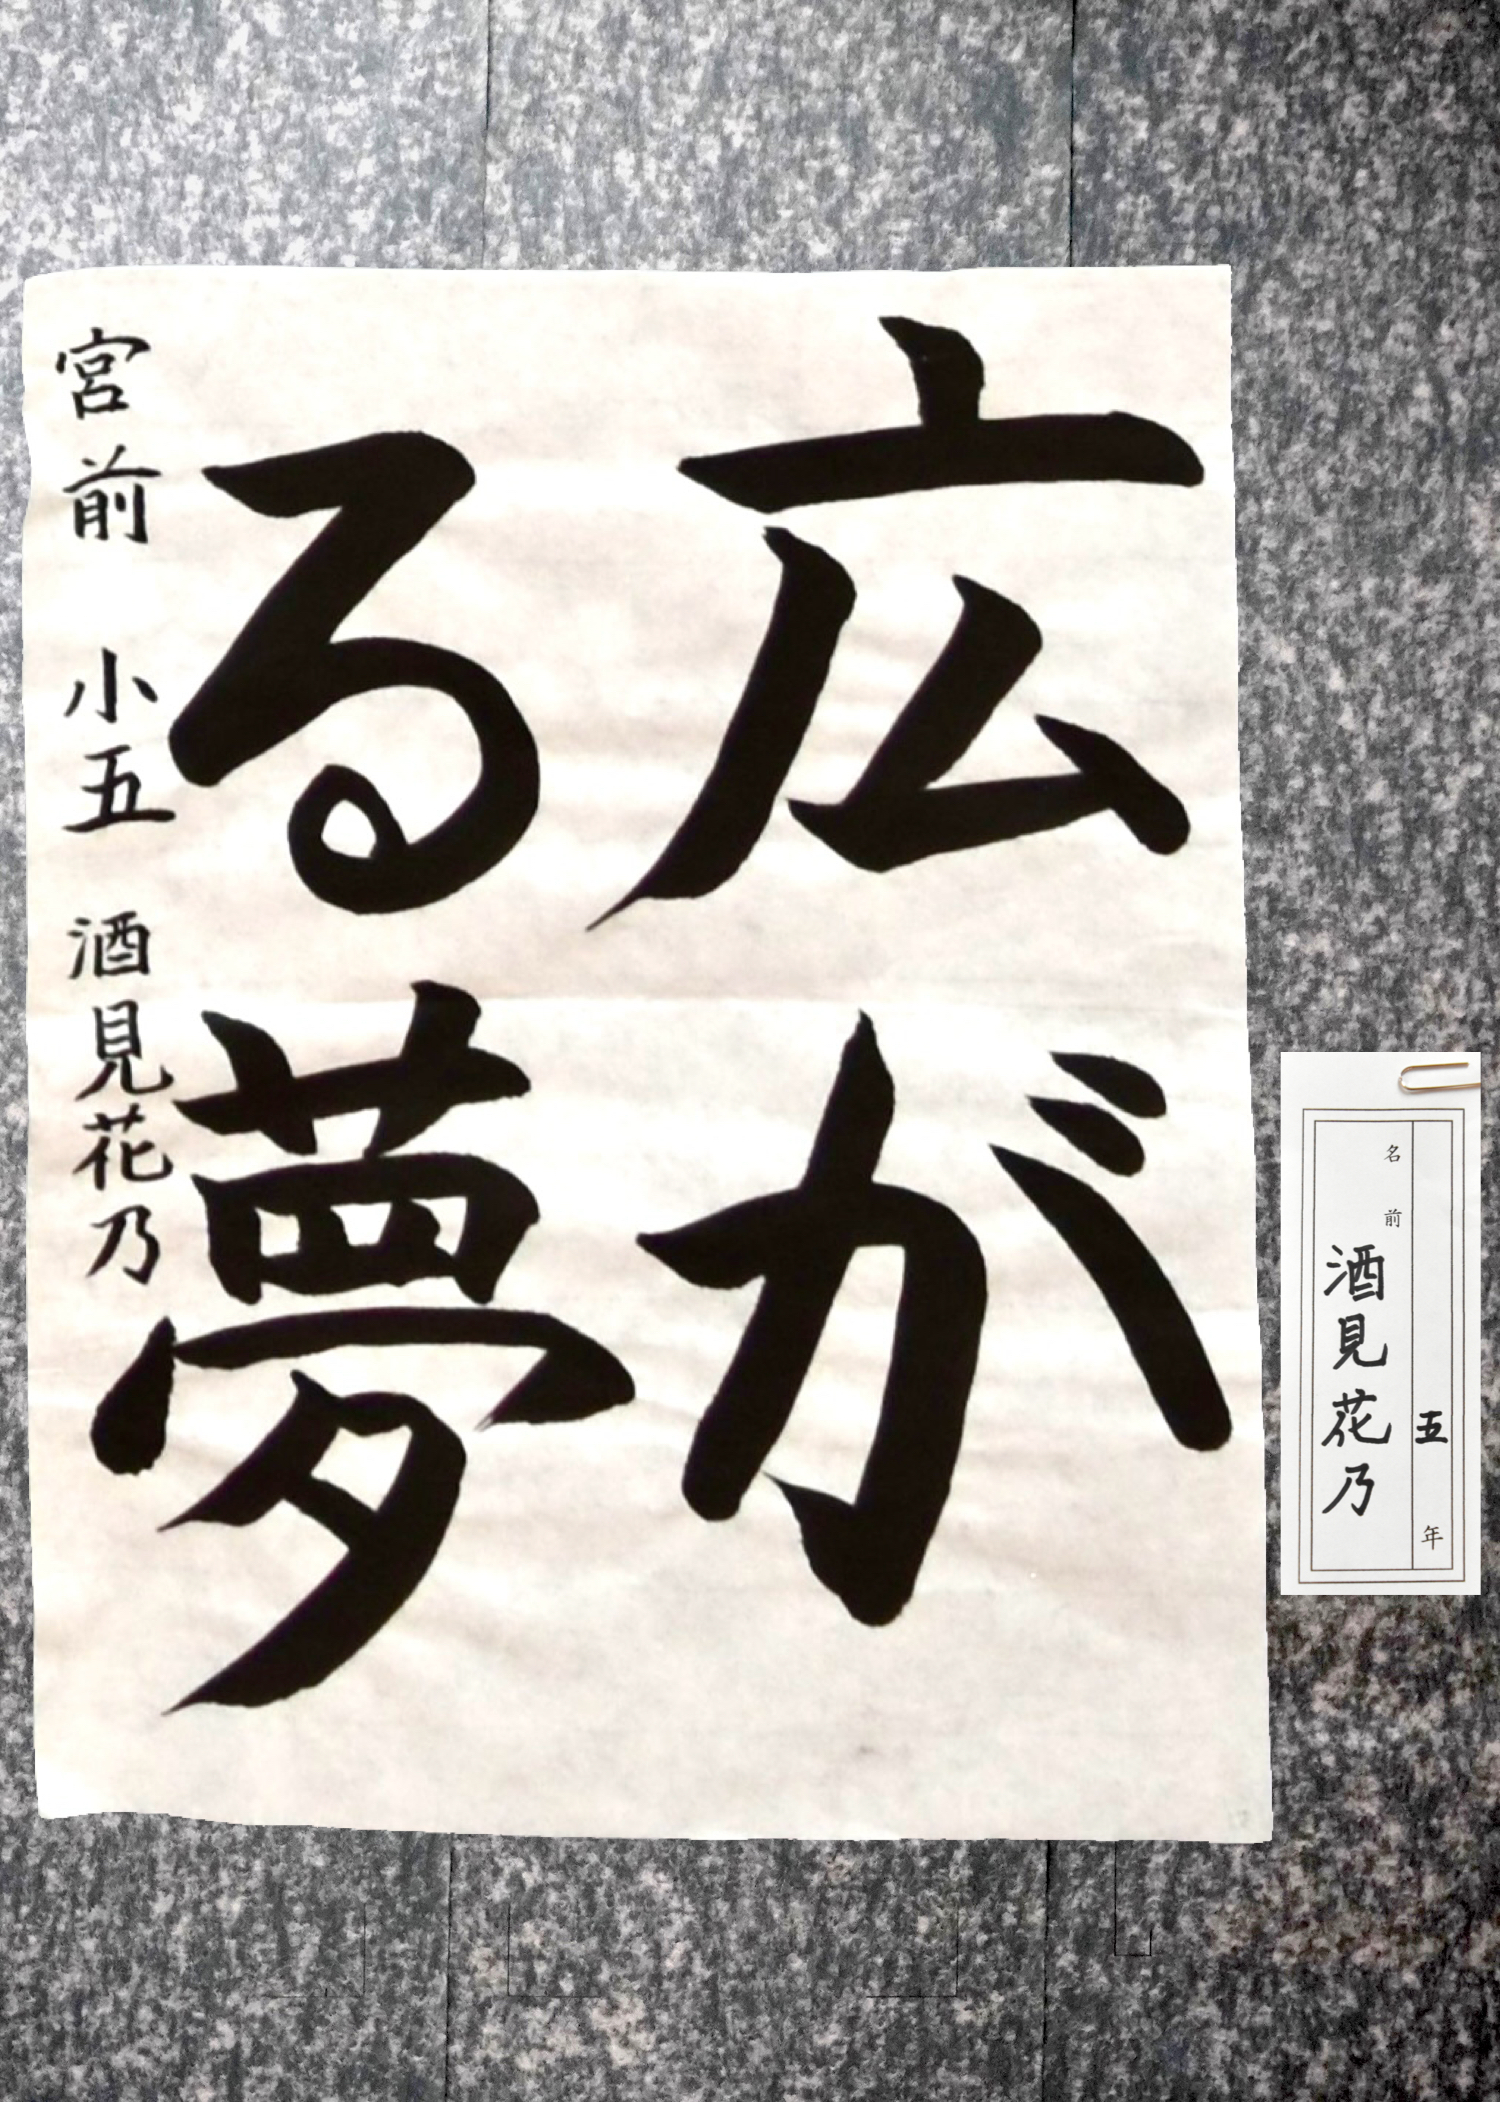 広が
る夢
宮前 小五 酒見花乃
五年
名前 酒見花乃